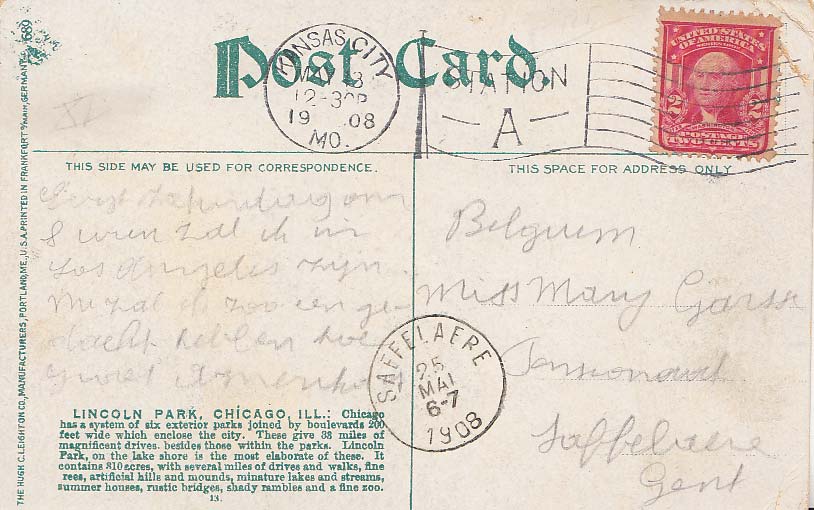 Post Card
KANSAS CITY
MAY 13
12-30P
19 08
MO.
STATION
A
UNITED STATES
OF AMERICA
2 2
POSTAGE
TWO CENTS
THIS SIDE MAY BE USED FOR CORRESPONDENCE.
THIS SPACE FOR ADDRESS ONLY
zal ik in
Los Angelis zijn
nu zal ik zoo een ge-
dacht hebben hoe
groot Amerika
Belguem
Miss Mary
Saffelaere
Gent
SAFFELAERE
25
MAI
6-7
1908
LINCOLN PARK, CHICAGO, ILL.: Chicago
has a system of six exterior parks joined by boulevards 200
feet wide which enclose the city. These give 38 miles of
magnificent drives. besides those within the parks. Lincoln
Park, on the lake shore is the most elaborate of these. It
contains 310 acres, with several miles of drives and walks, fine
rees, artificial hills and mounds, minature lakes and streams,
summer houses, rustic bridges, shady rambles and a fine zoo.
13.
THE HUGH C. LEIGHTON CO., MANUFACTURERS, PORTLAND, ME., U.S.A. PRINTED IN FRANKFORT o/MAIN, GERMANY.
689